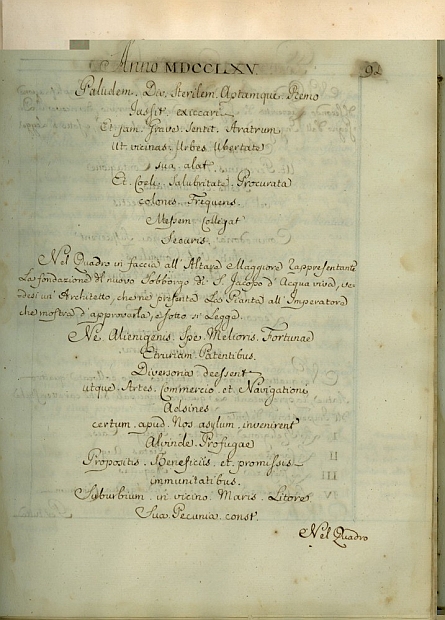 Anno MDCCLXV.
92
Paludem. Diu. Sterilem. Aptamque. Remo
Jussit. exiccari
Et jam. Grave. Sentit. Aratrum
Ut. vicinas. Urbes. Ubertate
sua. alat.
Et. Coeli. Salubritate. Procurata
colonus. Frequens.
Messem. Collegat
Securis.
Nel Quadro in faccia all' Altare Maggiore rappresentante
La fondazione del nuovo Sobborgo di S. Jacopo d' Acqua viva, ve-
desi un' Architetto, che ne presenta La Pianta all' Imperatore
che mostra d' approvarla, e sotto si Legge.
Ne. Alienigenis. Spe. Melioris. Fortunae
Etruriam. Petentibus.
Diversoria deessent
utque. Artes. Commercio. et. Navigationi
Adfines
certum. apud. Nos. asylum. invenirent
Aliunde. Profugae
Propositis. Beneficiis. et. promissis
immunitatibus.
Suburbium. in. vicino. Maris. Litore
Sua. Pecunia. const.
Nel Quadro